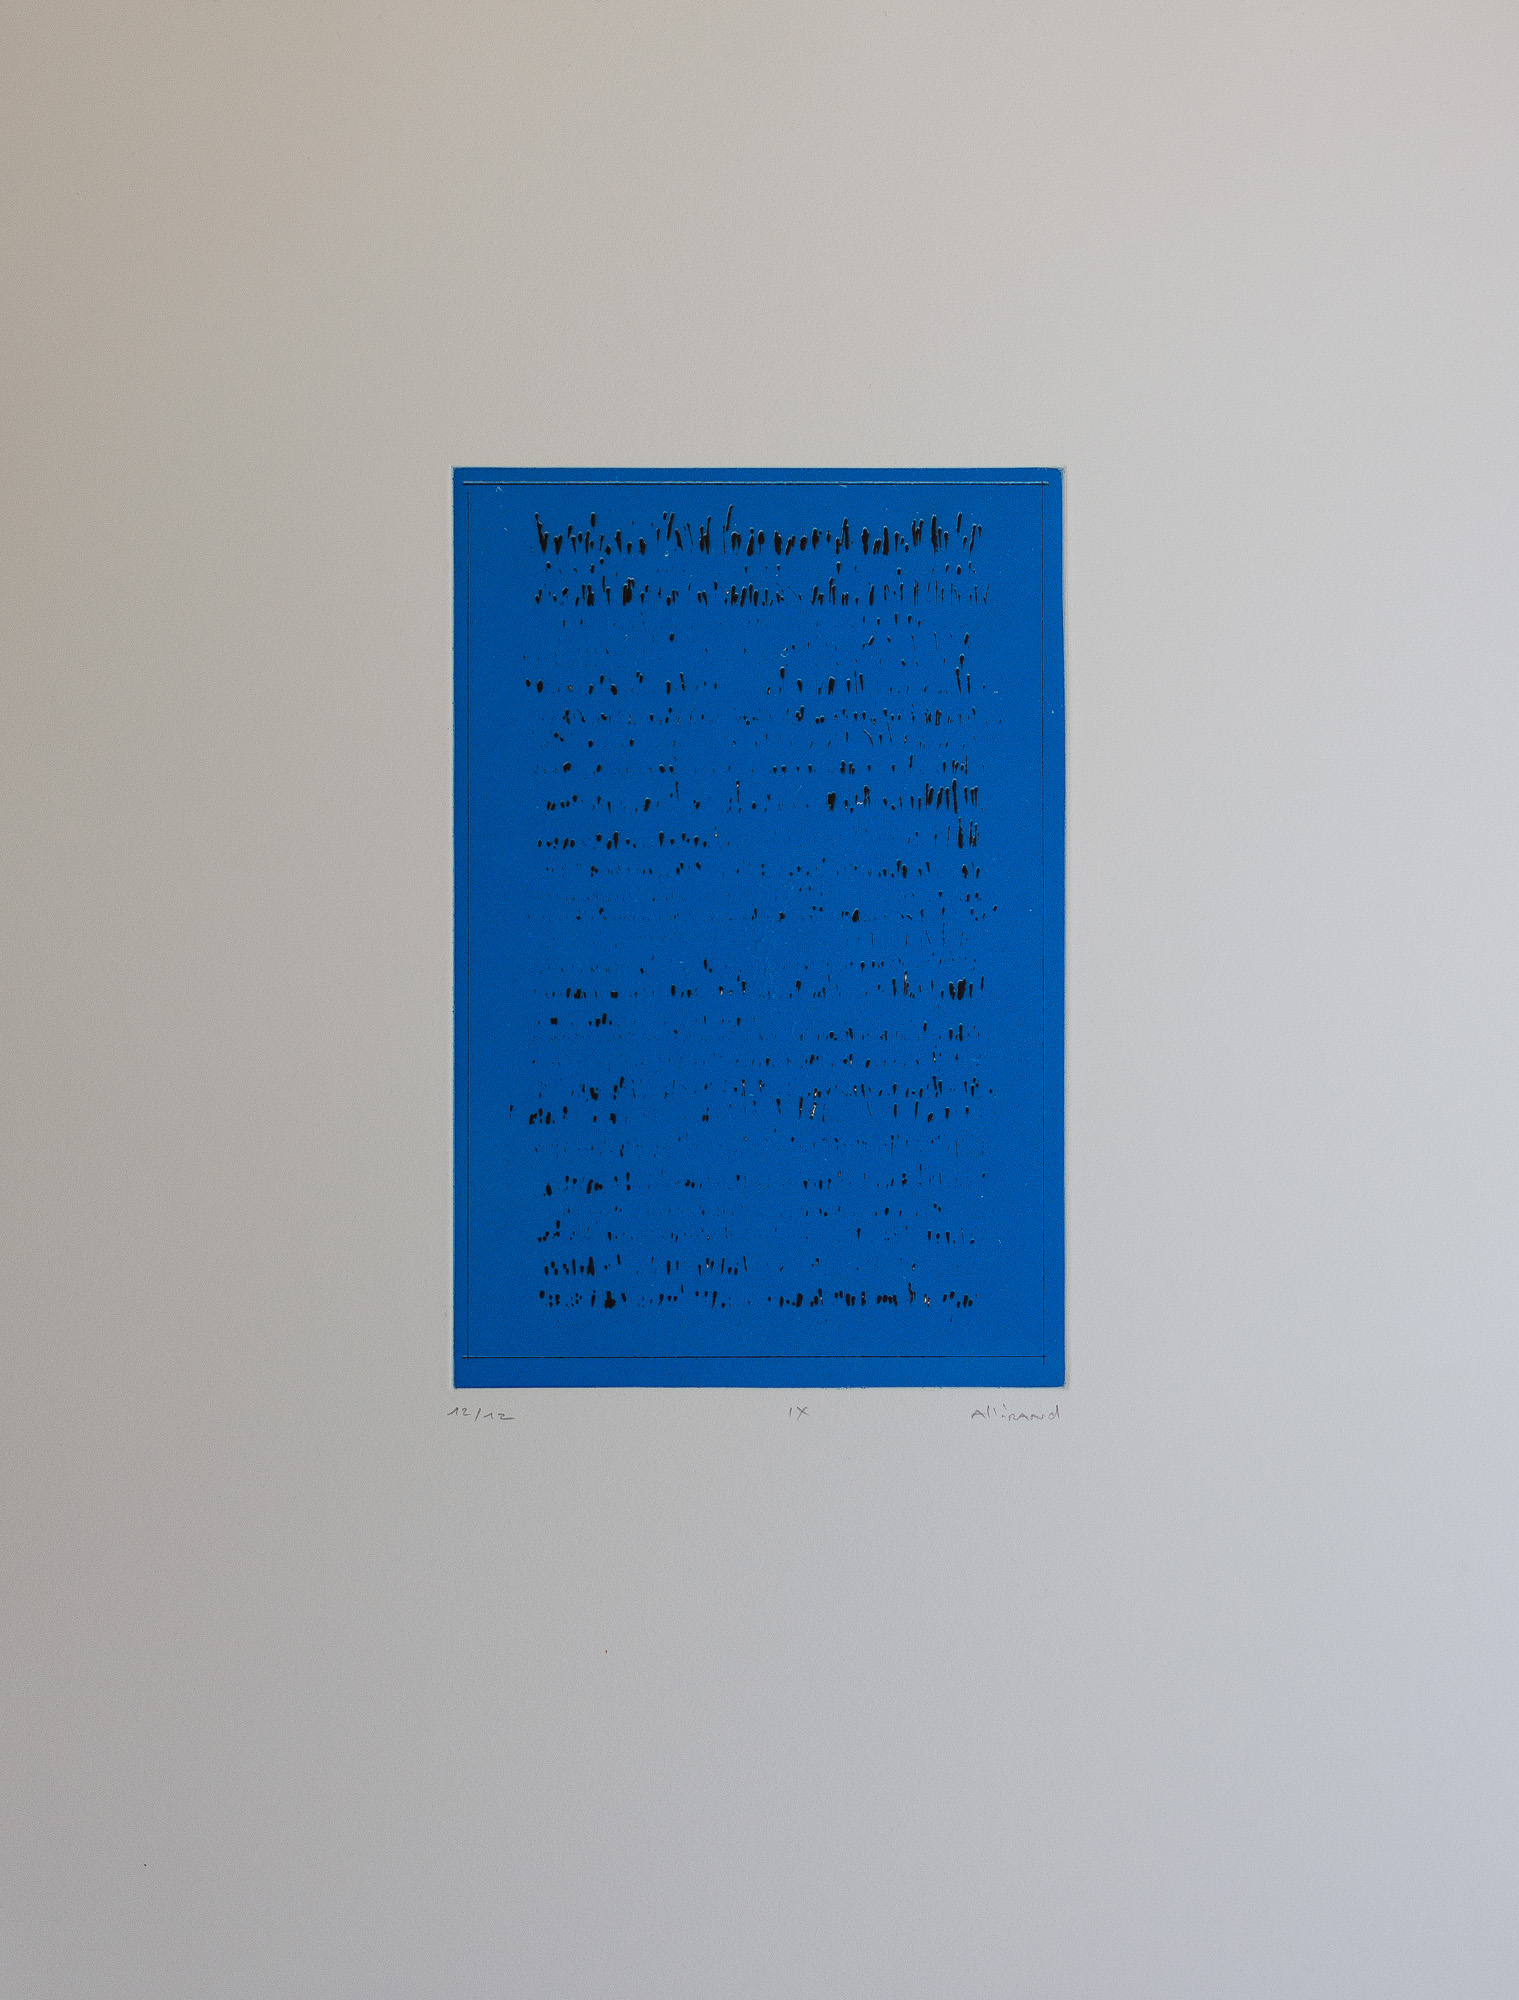 12/12 IX Allirand